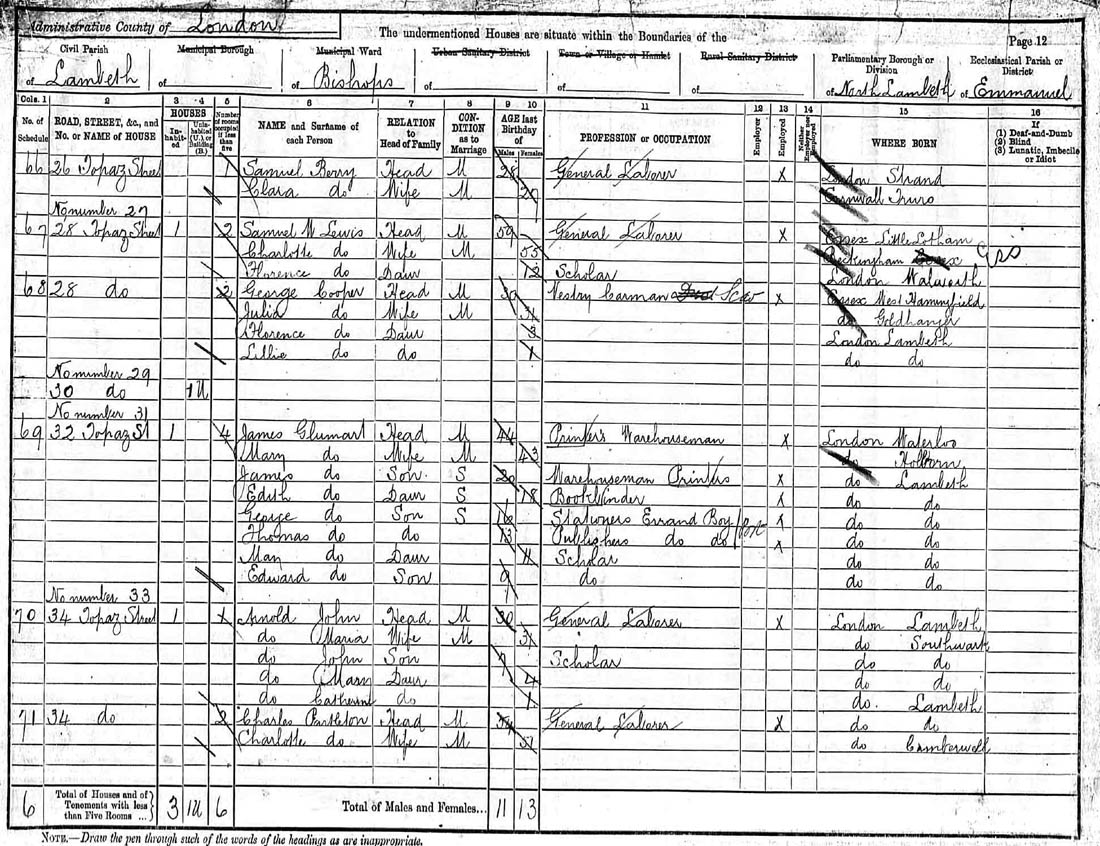 Administrative County of London
The undermentioned Houses are situate within the Boundaries of the
Page 12
Civil Parish Municipal Borough Municipal Ward Urban Sanitary District Town or Village or Hamlet Rural Sanitary District Parliamentary Borough or Division Ecclesiastical Parish or District
of Lambeth of of Bishops of of of of North Lambeth of Emmanuel
Cols. 1 2 3 4 5 6 7 8 9 10 11 12 13 14 15 16
No. of Schedule ROAD, STREET, &c., and No. or NAME of HOUSE HOUSES Inhabited Uninhabited (U.) or Building (B.) Number of rooms occupied if less than five NAME and Surname of each Person RELATION to Head of Family CONDITION as to Marriage AGE last Birthday of Males Females PROFESSION or OCCUPATION Employer Employed Neither Employer nor Employed WHERE BORN If (1) Deaf-and-Dumb (2) Blind (3) Lunatic, Imbecile or Idiot
66 26 Topaz Street 1 Samuel Berry Head M 28 General Laborer X London Strand
Clara do Wife M Cornwall Truro
No number 27
67 28 Topaz Street 1 2 Samuel W Lewis Head M 59 General Laborer X Essex Little Totham
Charlotte do Wife M 55 Essex
Florence do Daur 12 Scholar London Walworth
68 28 do 2 George Cooper Head M 30 Vestry Carman X Essex West
Julia do Wife M 31 do Goldhanger
Florence do Daur 3 London Lambeth
Lillie do do 1 do do
No number 29
30 do 1U
No number 31
69 32 Topaz St 1 4 James Glumart Head M 44 Printer's Warehouseman X London Waterloo
Mary do Wife M 43 do Holborn
James do Son S 20 Warehouseman Printers X do Lambeth
Edith do Daur S 18 Bookbinder X do do
George do Son S 16 Stationers Errand Boy X do do
Thomas do do 13 Publishers do do X do do
May do Daur 11 Scholar do do
Edward do Son 9 do do do
No number 33
70 34 Topaz Street 1 1 Arnold John Head M 30 General Laborer X London Lambeth
do Maria Wife M 31 do Southwark
do John Son Scholar do do
do Mary Daur 4 do do
do Catherine do 1 do. Lambeth
71 34 do 2 Charles Pantleton Head M 54 General Laborer X do do
Charlotte do Wife M 51 do Camberwell
6 Total of Houses and of Tenements with less than Five Rooms ... 3 1U 6 Total of Males and Females... 11 13
NOTE.—Draw the pen through such of the words of the headings as are inappropriate.